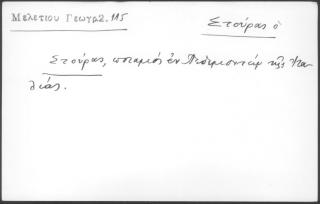 Μελετίου Γεωγρ. 115
Στούρας ὁ
Στούρας, ποταμὸς ἐν Πεδεμοντίῳ τῆς Ἰτα
λίας.